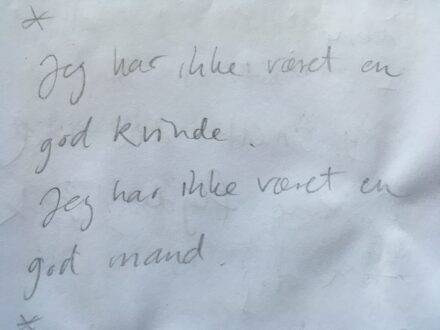 *
Jeg har ikke været en
god kvinde.
Jeg har ikke været en
god mand.
*